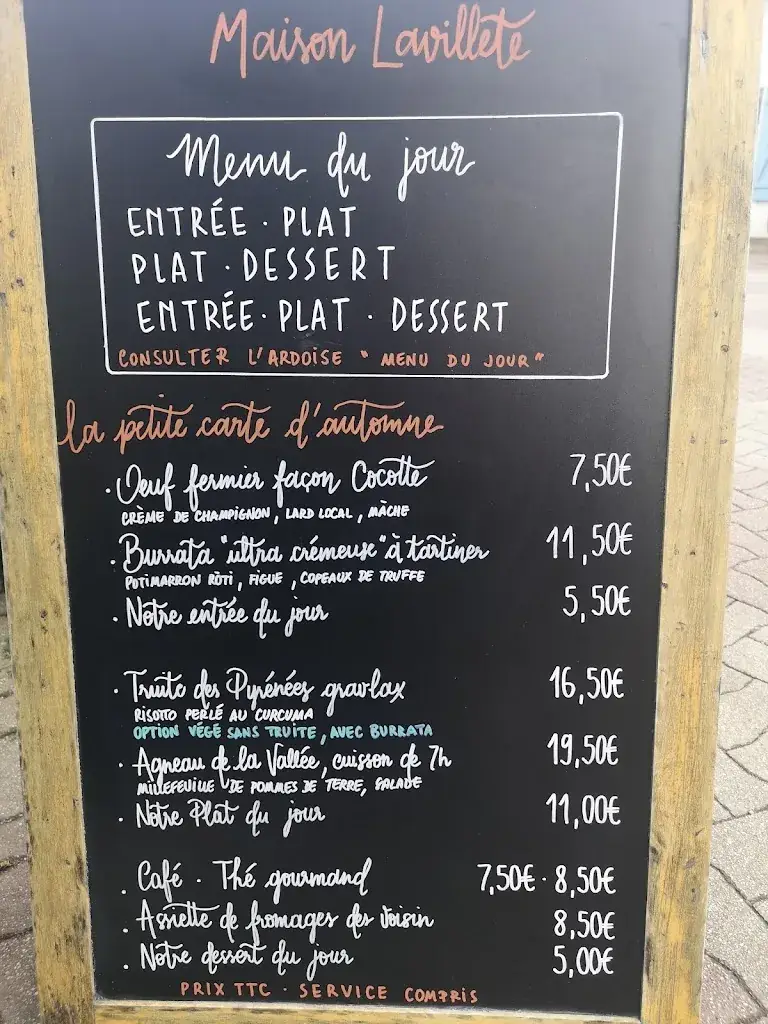 Maison Lavillete
Menu du jour
ENTRÉE · PLAT
PLAT · DESSERT
ENTRÉE · PLAT · DESSERT
CONSULTER L'ARDOISE "MENU DU JOUR"
la petite carte d'automne
· Oeuf fermier façon Cocotte 7,50€
CRÈME DE CHAMPIGNON, LARD LOCAL, MÂCHE
· Burrata "ultra crémeuse" à tartiner 11,50€
POTIMARRON RÔTI, FIGUE, COPEAUX DE TRUFFE
· Notre entrée du jour 5,50€
· Truite des Pyrénées gravlax 16,50€
RISOTTO PERLÉ AU CURCUMA
OPTION VÉGÉ SANS TRUITE, AVEC BURRATA
· Agneau de la Vallée, cuisson de 7h 19,50€
MILLEFEUILLE DE POMMES DE TERRE, SALADE
· Notre Plat du jour 11,00€
· Café · Thé gourmand 7,50€ · 8,50€
· Assiette de fromages des voisin 8,50€
· Notre dessert du jour 5,00€
PRIX TTC · SERVICE COMPRIS